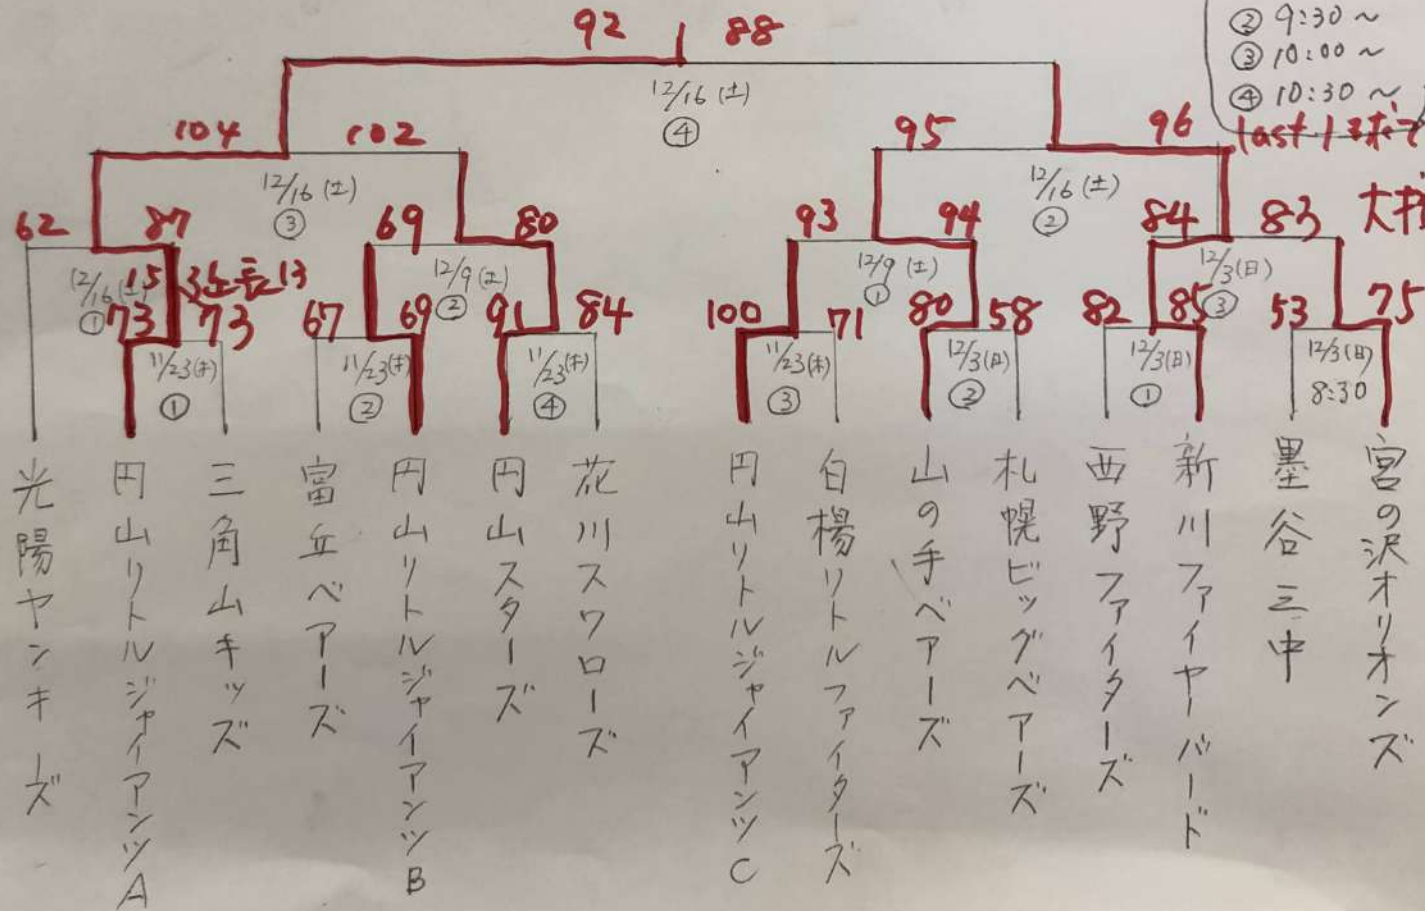 ② 9:30～
③ 10:00～
④ 10:30～
92 88
12/16(土)
④
104 102
95 96
last 1
12/16(土)
③
12/16(土)
②
62 87
69 80
93 94
84 83
12/16(土)
①
15 13
12/9(土)
②
12/9(土)
①
12/3(日)
③
73 73
67 69
91 84
100 71
80 58
82 85
53 75
11/23(木)
①
11/23(木)
②
11/23(木)
④
11/23(木)
③
12/3(日)
②
12/3(日)
①
12/3(日)
8:30
光陽ヤンキーズ
円山リトルジャイアンツA
三角山キッズ
富丘ベアーズ
円山リトルジャイアンツB
円山スターズ
花川スワローズ
円山リトルジャイアンツC
白楊リトルファイターズ
山の手ベアーズ
札幌ビッグベアーズ
西野ファイターズ
新川ファイヤーバード
墨谷三中
宮の沢オリオンズ